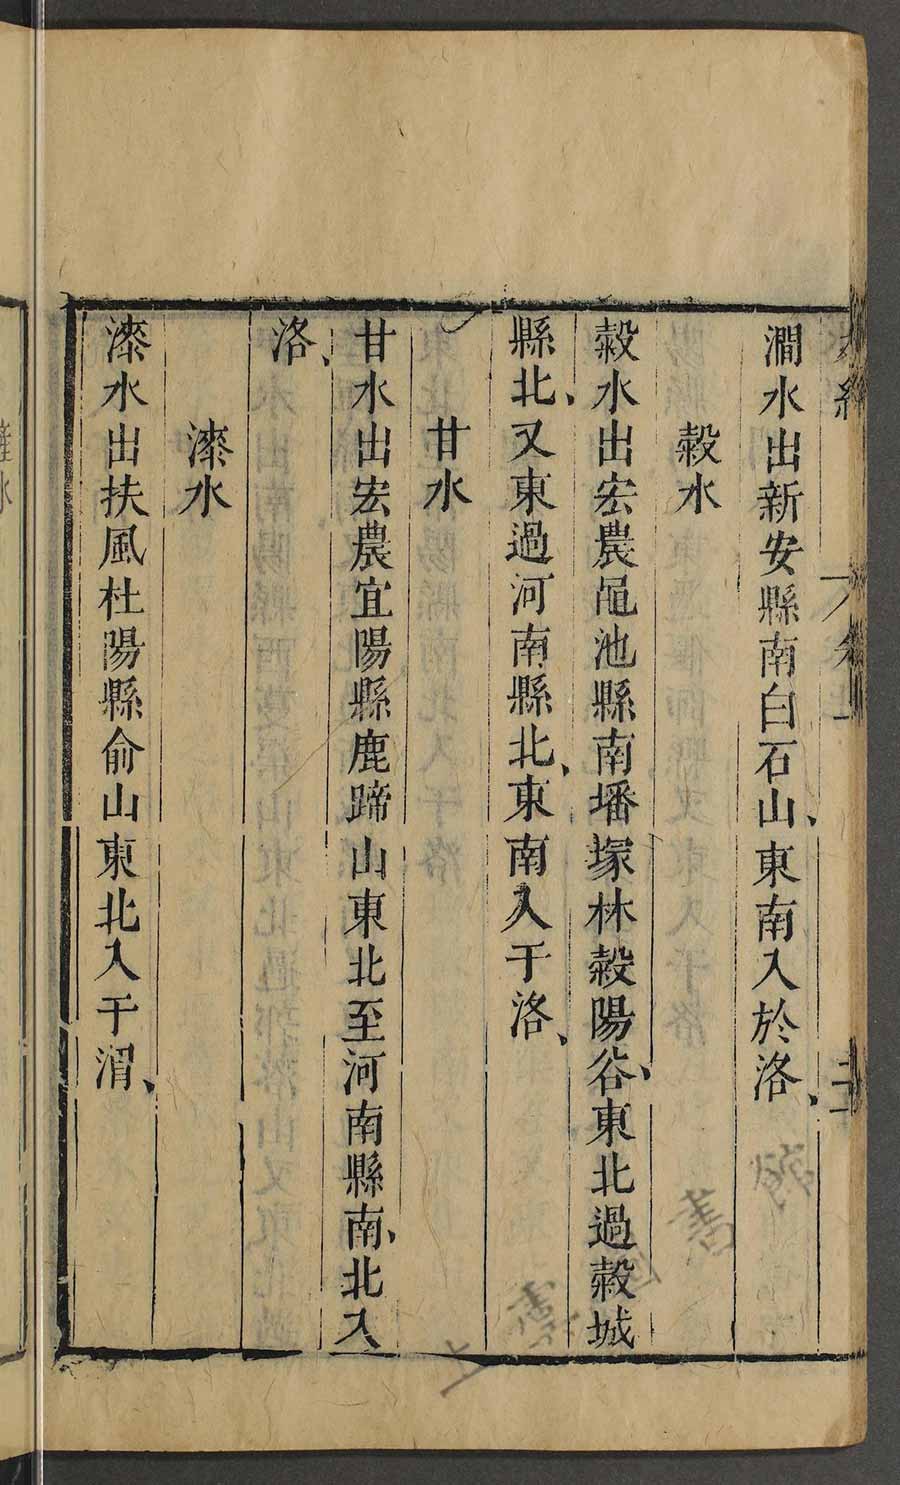 澗水出新安縣南白石山、東南入於洛、
穀水
穀水出宏農黽池縣南墦塚林穀陽谷、東北過穀城
縣北、又東過河南縣北、東南入于洛、
甘水
甘水出宏農宜陽縣鹿蹄山東北至河南縣南、北入
洛、
漆水
漆水出扶風杜陽縣俞山東北入于渭、